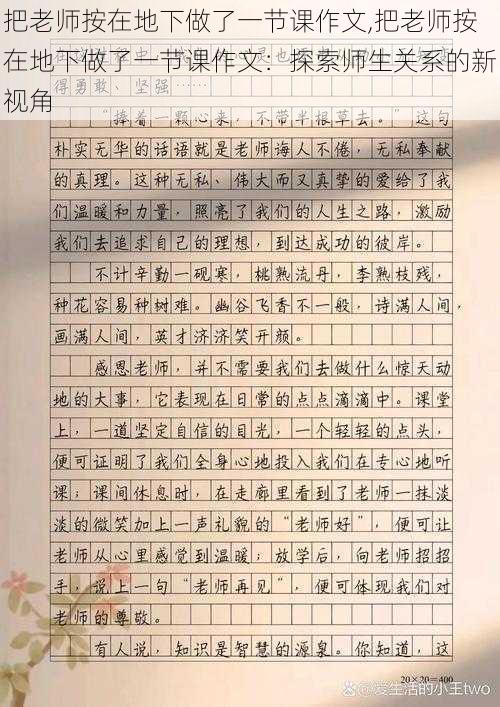 把老师按在地下做了一节课作文,把老师按
在地下做了一节课作文：探索师生关系的新
视角
得勇敢、坚强……
“捧着一颗心来，不带半根草去。”这句
朴实无华的话语就是老师诲人不倦，无私奉献
的真理。这种无私、伟大而又真挚的爱给了我
们温暖和力量，照亮了我们的人生之路，激励
我们去追求自己的理想，到达成功的彼岸。
不计辛勤一砚寒，桃熟流丹，李熟枝残，
种花容易种树难。幽谷飞香不一般，诗满人间，
画满人间，英才济济笑开颜。
感恩老师，并不需要我们去做什么惊天动
地的大事，它表现在日常的点点滴滴中。课堂
上，一道坚定自信的目光，一个轻轻的点头，
便可证明了我们全身心地投入我们在专心地听
课；课间休息时，在走廊里看到了老师一抹淡
淡的微笑加上一声礼貌的“老师好”，便可让
老师从心里感觉到温暖；放学后，向老师招招
手，说上一句“老师再见”，便可体现我们对
老师的尊敬。
有人说，知识是智慧的源泉。你知道，这
20×20=400
@爱生活的小王two